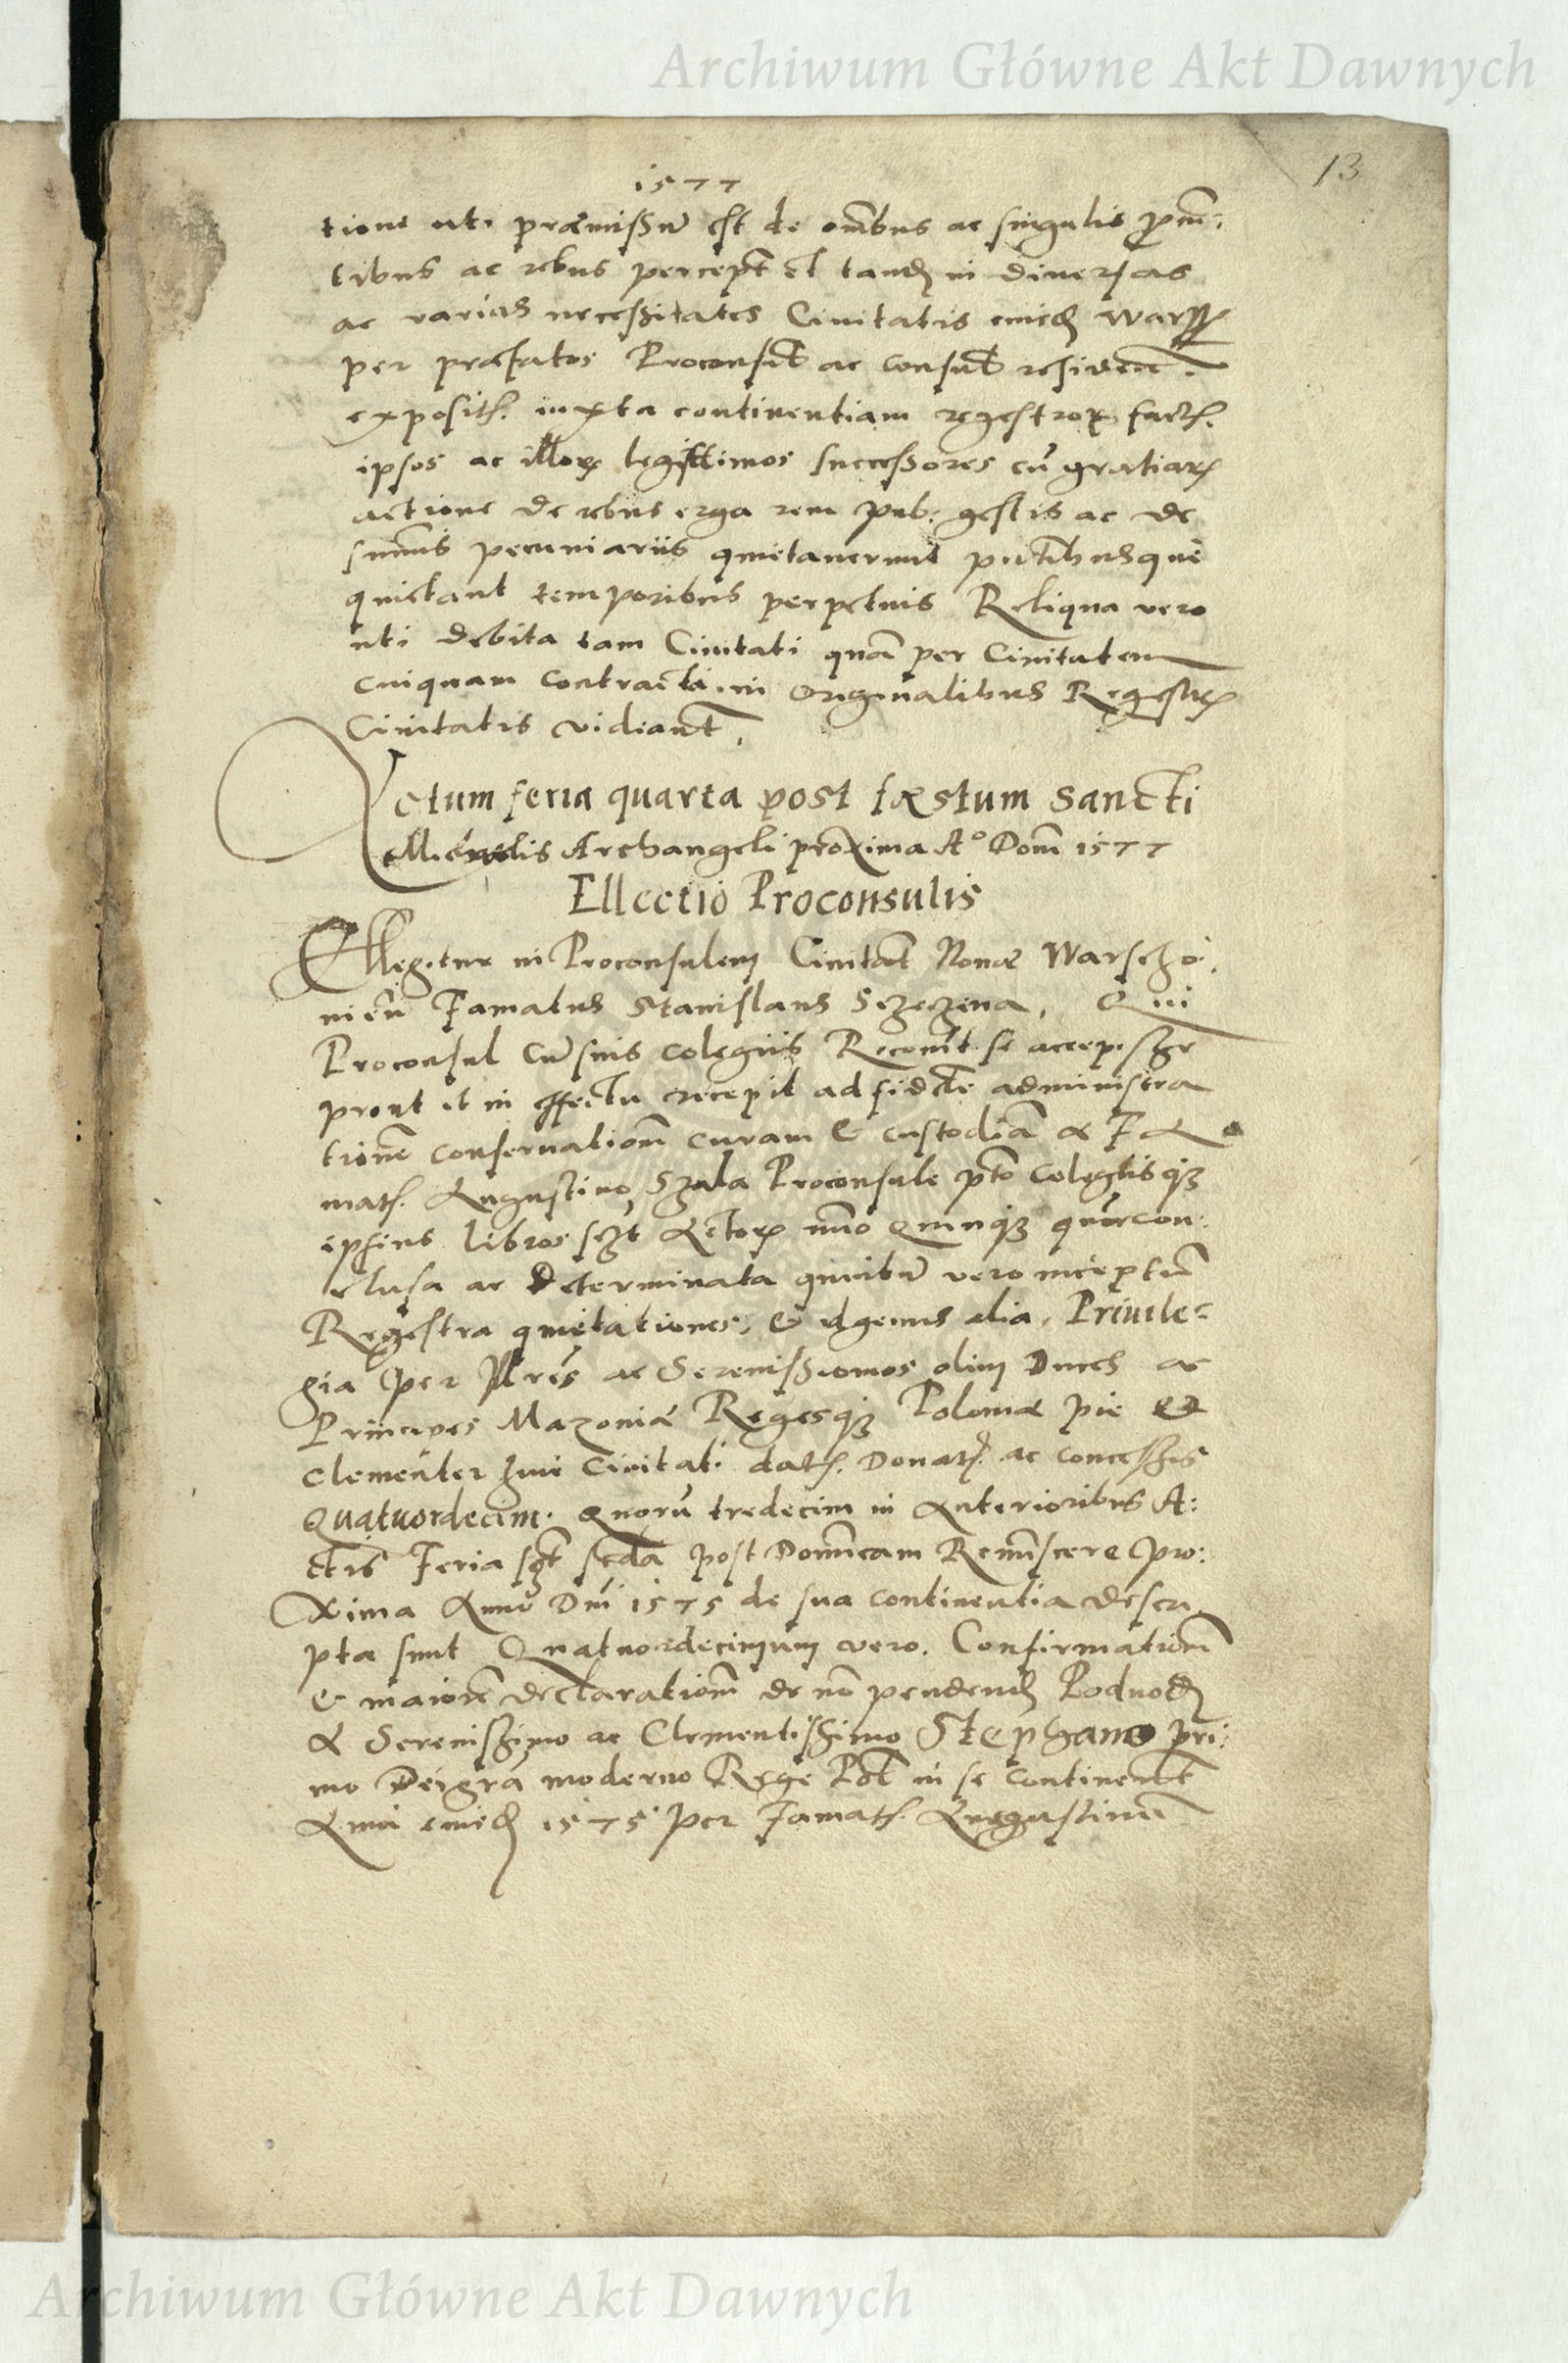 Archiwum Główne Akt Dawnych
13
1577
tione uti præmissũ est de om̃bus ac singulis
tibus ac rebus percept et tand in diuersas
ac varias necessitates Ciuitatis eiusd
per præfatos Proconsul ac consul resident.
exposit. iuxta continentiam regestror fact.
ipsos ac illor legittimos successores cũ gratiar
actione de rebus erga rem pub: gestis ac de
sum̃is pecuniariis quietauerunt
quietant temporibus perpetuis Reliqua vero
uti debita tam Ciuitati quã per Ciuitatem
cuiquam contracta in originalibus Regestr
Ciuitatis vidiant.
Actum feria quarta post fæstum Sancti
Michaelis Archangeli proxima A° Dom̃ 1577
Ellectio Proconsulis
Ellegitur in Proconsulem Ciuitat Nouæ Warscho:
uieñ Famatus Stanislaus Sczeczina, Qui
Proconsul Cũ suis Colegiis Recom̃t se accepisse
prout et in effectu recepit ad fid administra
tionẽ conseruationẽ curam & custodiã a Fa
mat. Augustino Szula Proconsule Colegiisq
ipsius libros Actor quinq quor con:
clusa ac determinata quibũ vero inceptũ
Regestra quietationes, & id genus alia, Priuile=
gia per ac Serenissiomos olim Duces ac
Principes Mazouiæ Regesq Poloniæ pie et
clementer huic Ciuitati dat. Donat. ac concessis
Quatuordecim. Quorũ tredecim in Anterioribus A:
ctis Feria post Dominicam Reminiscere pro:
xima Anno Dñi 1575 de sua continentia descri
pta sunt Quatuordecimum vero. Confirmationẽ
& maiorẽ declarationẽ de nõ pendend Podwod
A Serenissimo ac Clementissimo Stephano pri:
mo Dei grã moderno Rege Pol in se continent
Anni eiusd 1575 per Famat. Augustinũ
Archiwum Główne Akt Dawnych